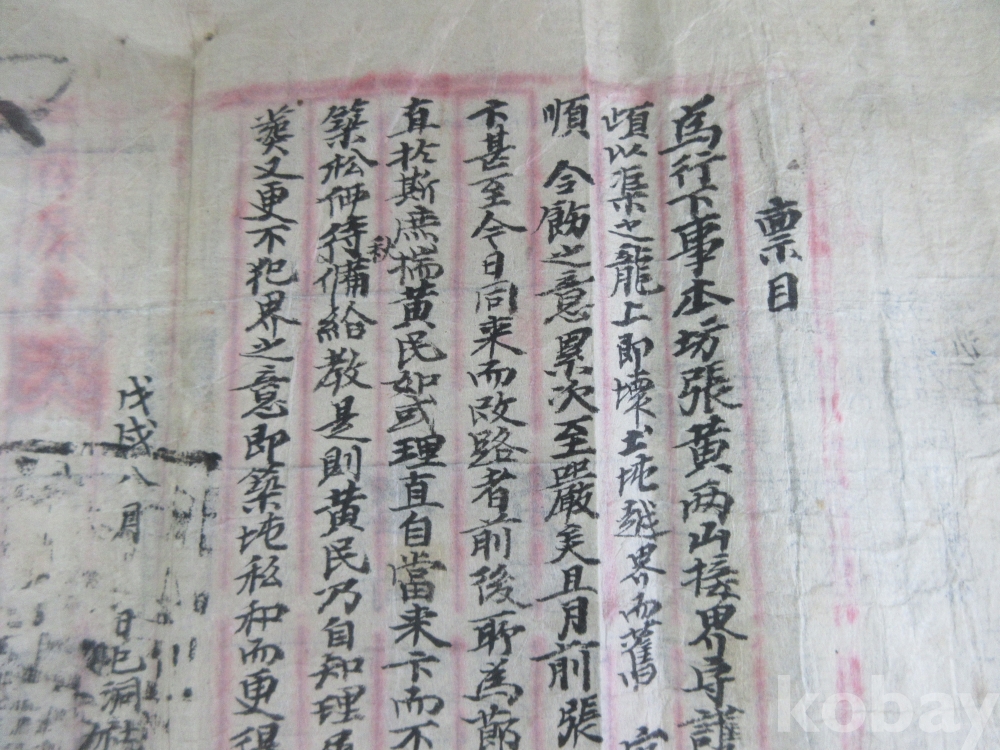 稟目
為行下事本坊張黃兩山接界守護
頃以渠之龍上即壞土垗越界而舊
順 令飭之意累次至嚴矣且月前張
卞甚至今日同来而改路者前後所為節
直於斯庶揣黃民如或理直自當来卞而不
築松価待秋備給教是則黃民乃自知理
葬又更不犯界之意即築垗私和而更得
戊戌八月 日 洞社
kobay